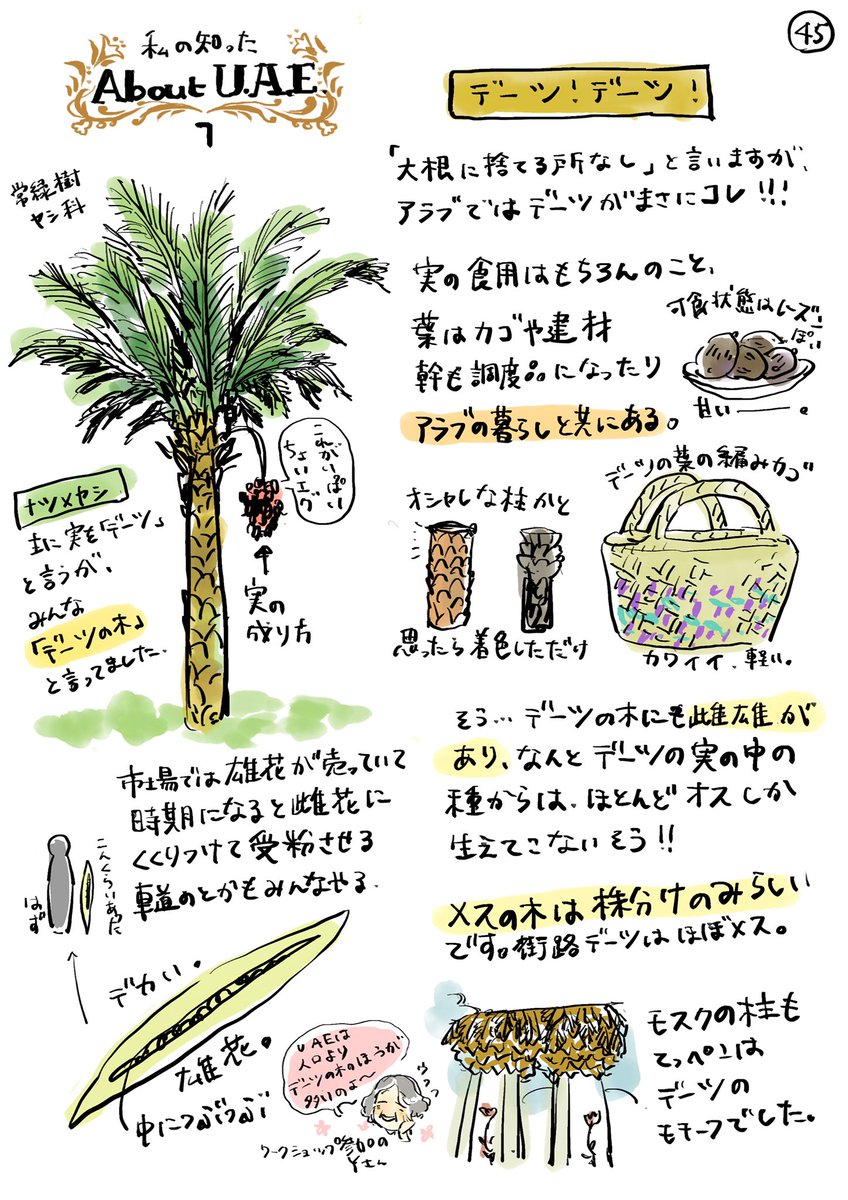 45
私の知った
About U.A.E.
7
デーツ!デーツ!
「大根に捨てる所なし」と言いますが、
アラブではデーツがまさにコレ!!!
常緑樹
ヤシ科
実の食用はもちろんのこと、
葉はカゴや建材
幹も調度品になったり
アラブの暮らしと共にある。
可食状態はレーズン
っぽい
甘い——。
これがいっぱい
ちょいエグ
実の
成り方
ナツメヤシ
主に実を「デーツ」
と言うが、
みんな
「デーツの木」
と言ってました。
オシャレな柱かと
思ったら着色しただけ
デーツの葉の編みカゴ
カワイイ、軽い。
そう…デーツの木にも雌雄が
あり、なんとデーツの実の中の
種からは、ほとんどオスしか
生えてこないそう!!
メスの木は株分けのみらしい
です。街路デーツはほぼメス。
市場では雄花が売っていて
時期になると雌花に
くくりつけて受粉させる
車道のとかもみんなやる。
こんくらいあった
はず
デカい。
雄花。
中につぶつぶ
UAEは
人口より
デーツの木のほうが
多いのよ〜
ウフフフ
ワークショップ参加の
Yさん
モスクの柱も
てっぺんは
デーツの
モチーフでした。